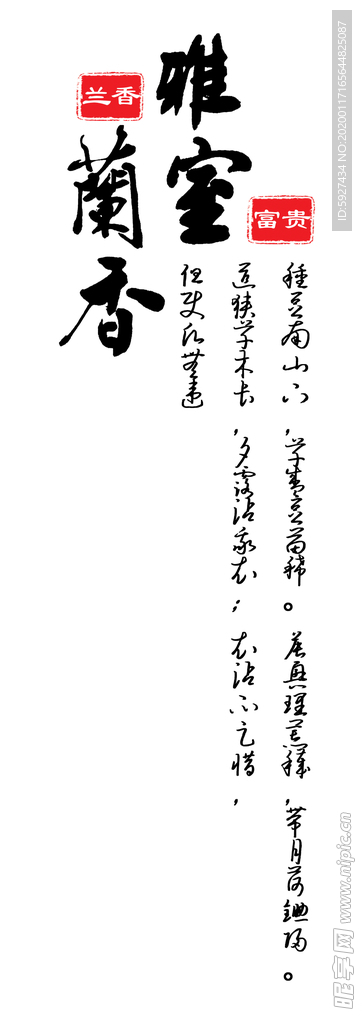 雅室
蘭香
兰香
富贵
種豆南山下,草盛豆苗稀。晨興理荒穢,带月荷鋤归。
道狭草木长,夕露沾我衣;衣沾不足惜,
但使願無違
ID:5927434 NO:20200117165644825087
昵享网 www.nipic.cn